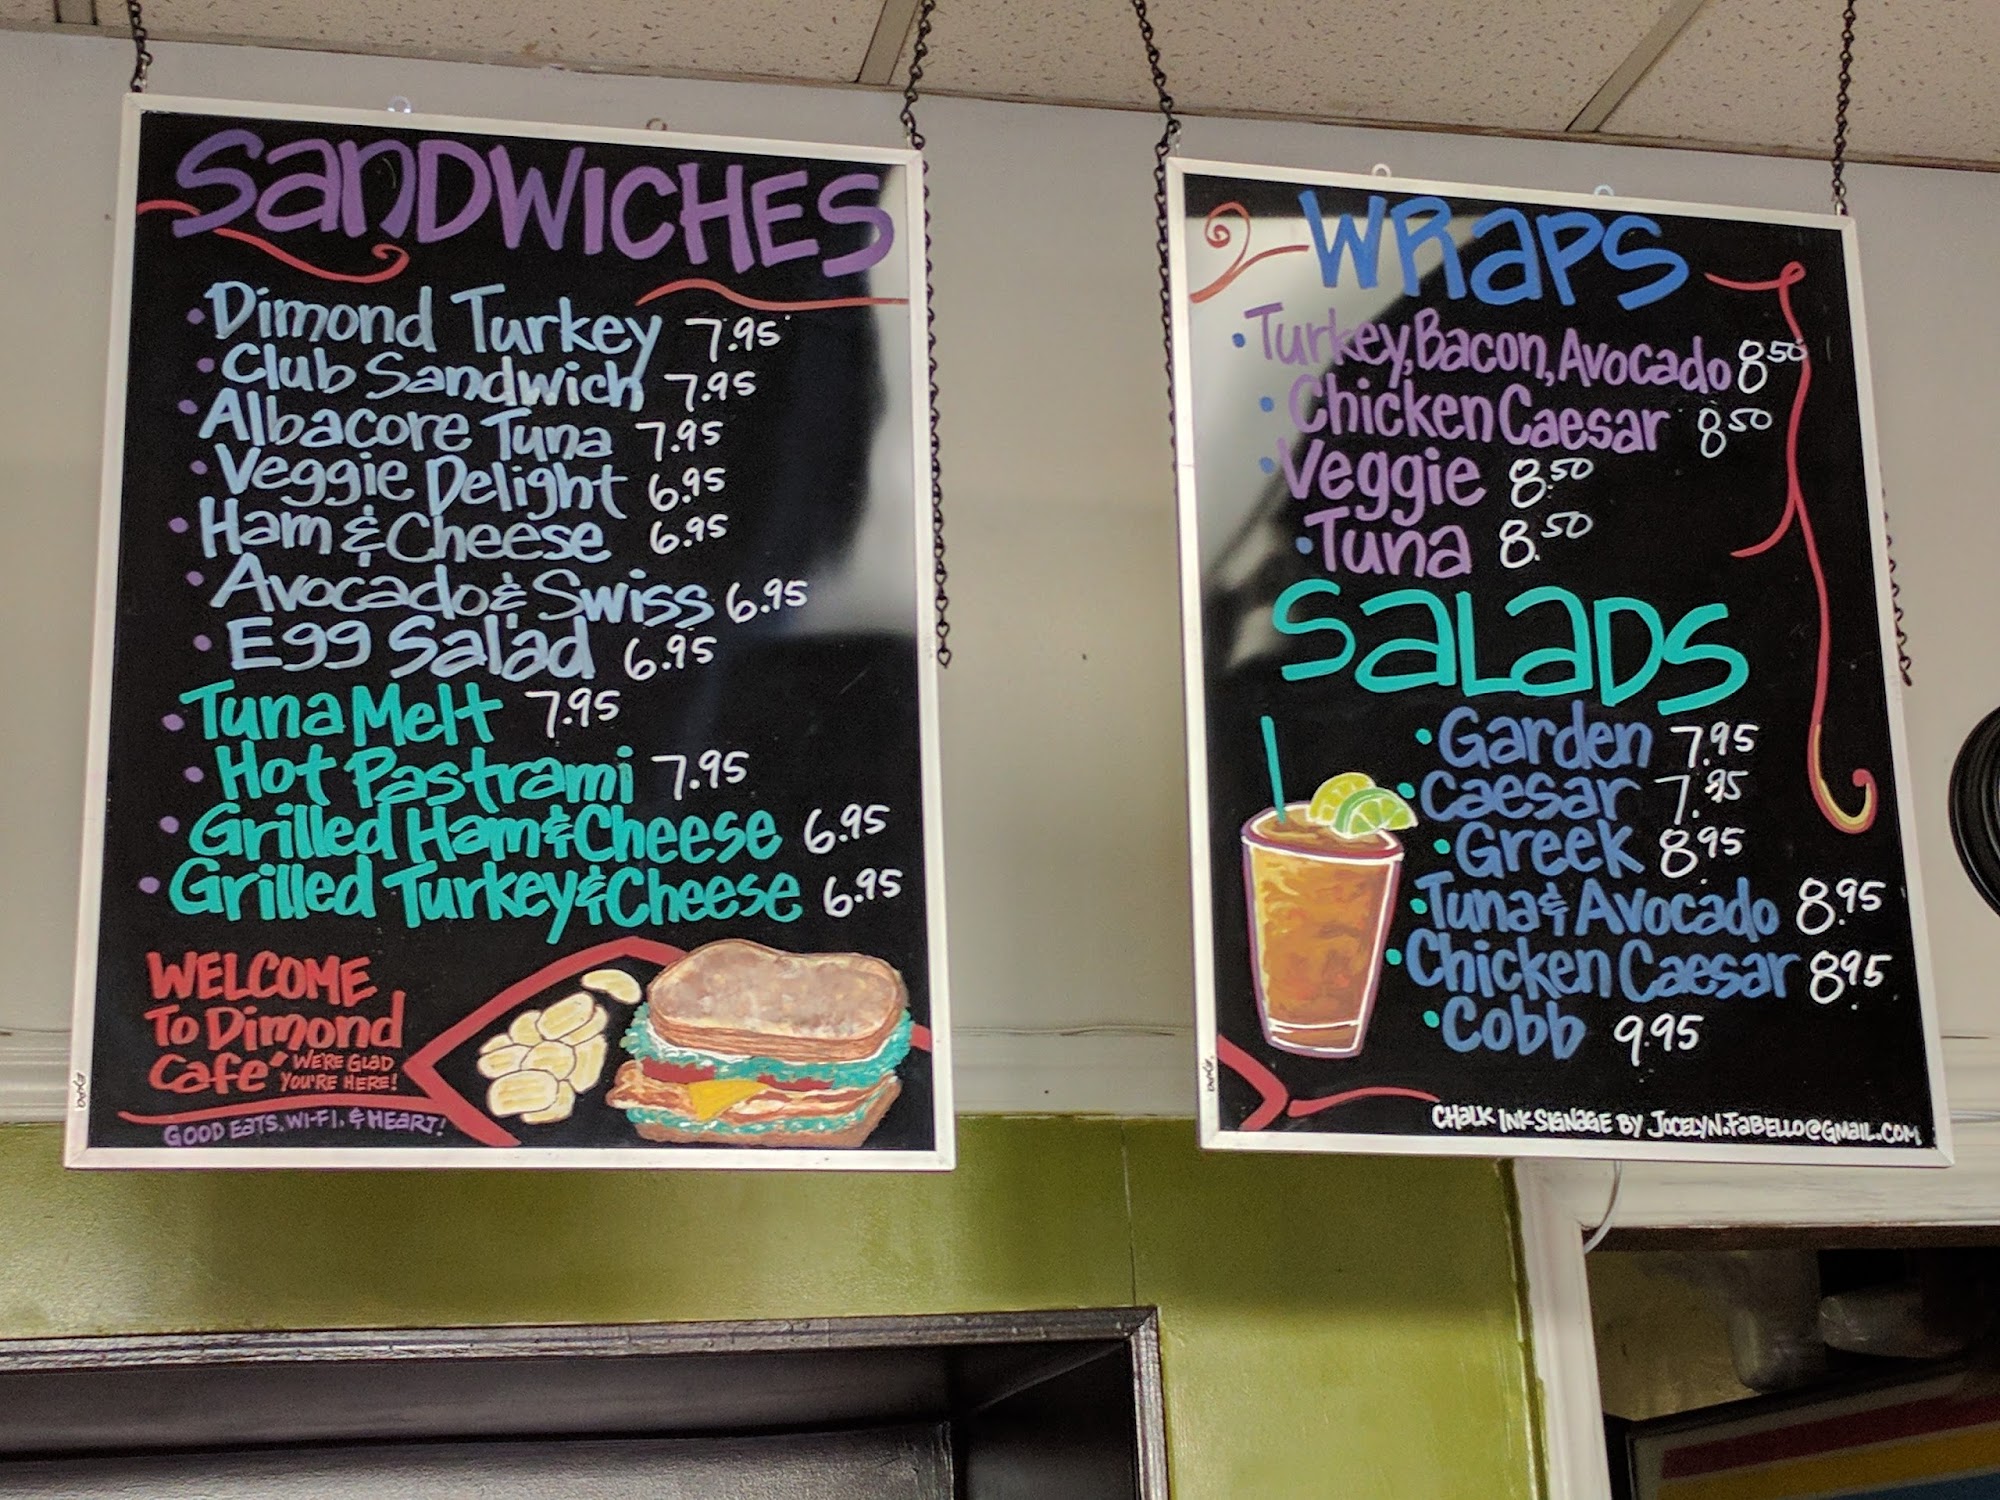 SANDWICHES
• Dimond Turkey 7.95
• Club Sandwich 7.95
• Albacore Tuna 7.95
• Veggie Delight 6.95
• Ham & Cheese 6.95
• Avocado & Swiss 6.95
• Egg Salad 6.95
• Tuna Melt 7.95
• Hot Pastrami 7.95
• Grilled Ham & Cheese 6.95
• Grilled Turkey & Cheese 6.95
WELCOME
To Dimond
Café WE'RE GLAD
YOU'RE HERE!
GOOD EATS, WI-FI, & HEART!
WRAPS
• Turkey, Bacon, Avocado 8.50
• Chicken Caesar 8.50
• Veggie 8.50
• Tuna 8.50
SALADS
• Garden 7.95
• Caesar 7.95
• Greek 8.95
• Tuna & Avocado 8.95
• Chicken Caesar 8.95
• Cobb 9.95
CHALK INK SIGNAGE BY JOCELYN.FABELLO@GMAIL.COM